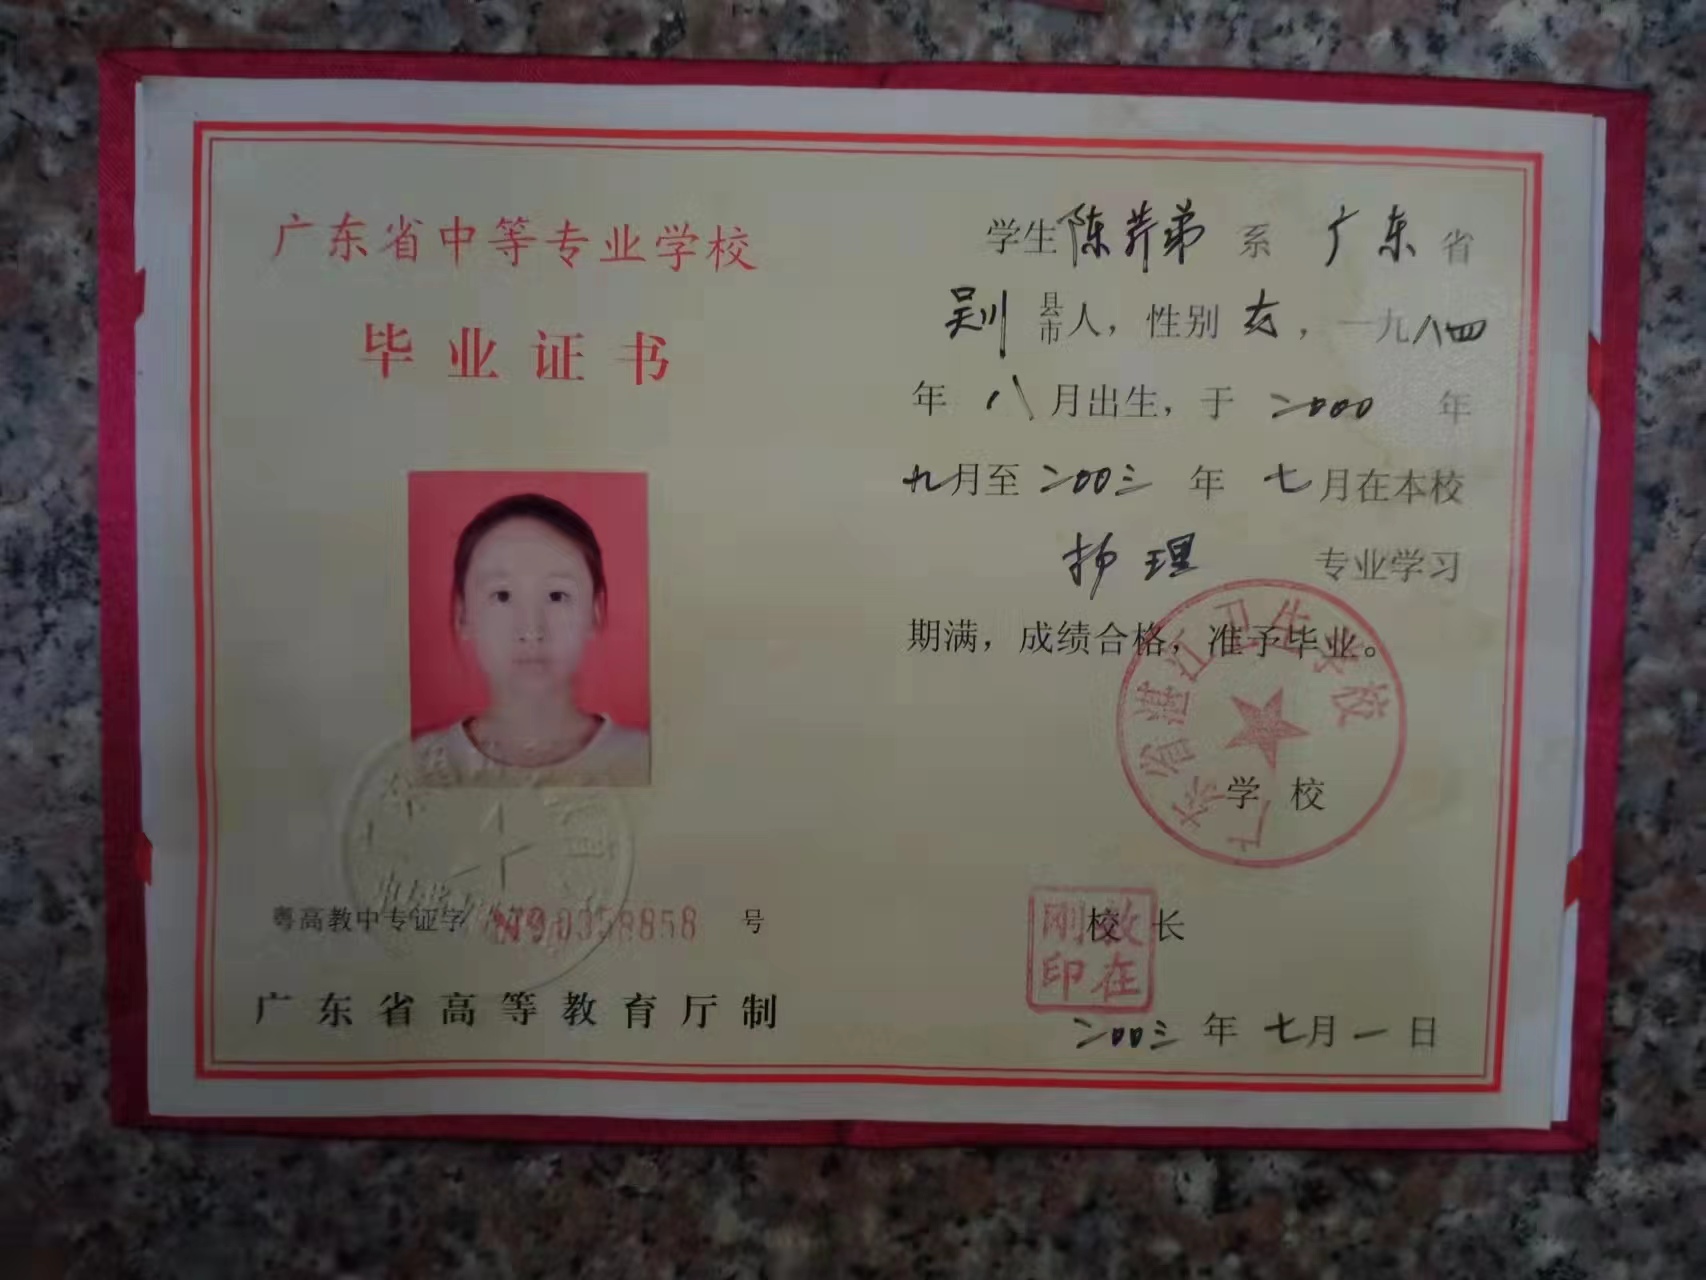 广东省中等专业学校
毕业证书
粤高教中专证字 №90358858 号
广东省高等教育厅制
学生陈荞弟系广东省
吴川县市人，性别女，一九八四
年八月出生，于二000年
九月至二00三年七月在本校
护理专业学习
期满，成绩合格，准予毕业。
广东省湛江卫生学校
学校
校长
二00三年七月一日